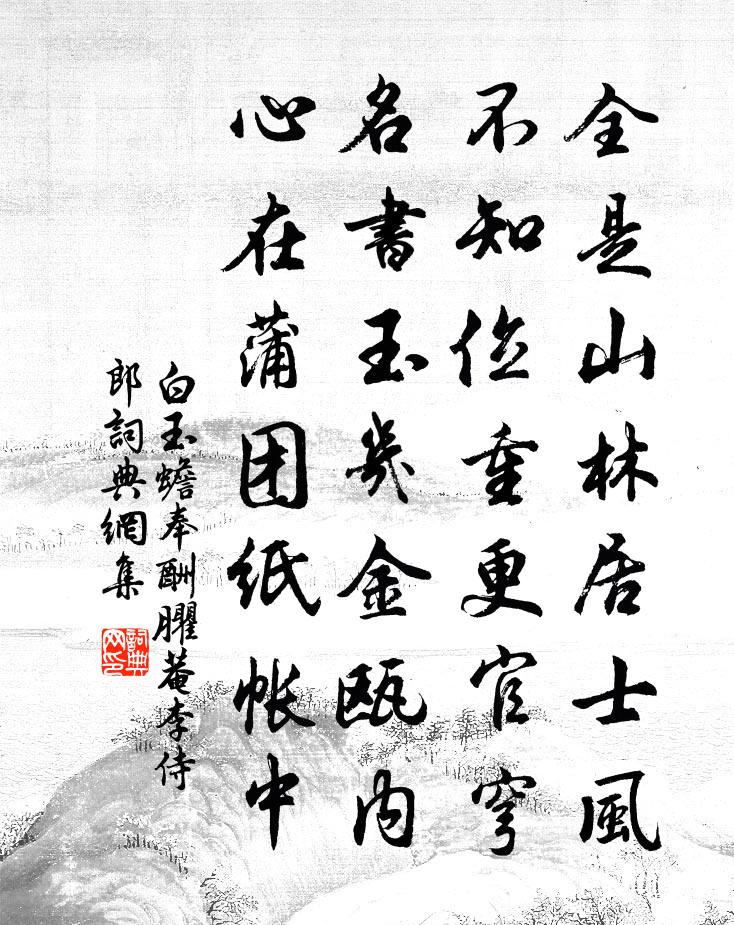 全是山林居士風
不知位重更官穹
名書玉幾金甌內
心在蒲团紙帳中
白玉蟾奉酬臞菴李侍
郎詞典網集
詞典
网印